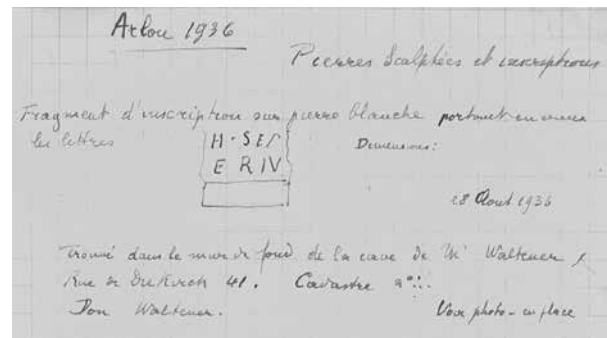 Arlon 1936
Pierres Sculptées et inscriptions
Fragment d'inscription sur pierre blanche portant en creux
les lettres
H·SE
E RIV
Dimensions:
18 Aout 1936
Trouvé dans le mur de fond de la cave de Mr Waltener
Rue de Diekirch 41. Cadastre n°:
Don Waltener.
Voir photo - en place